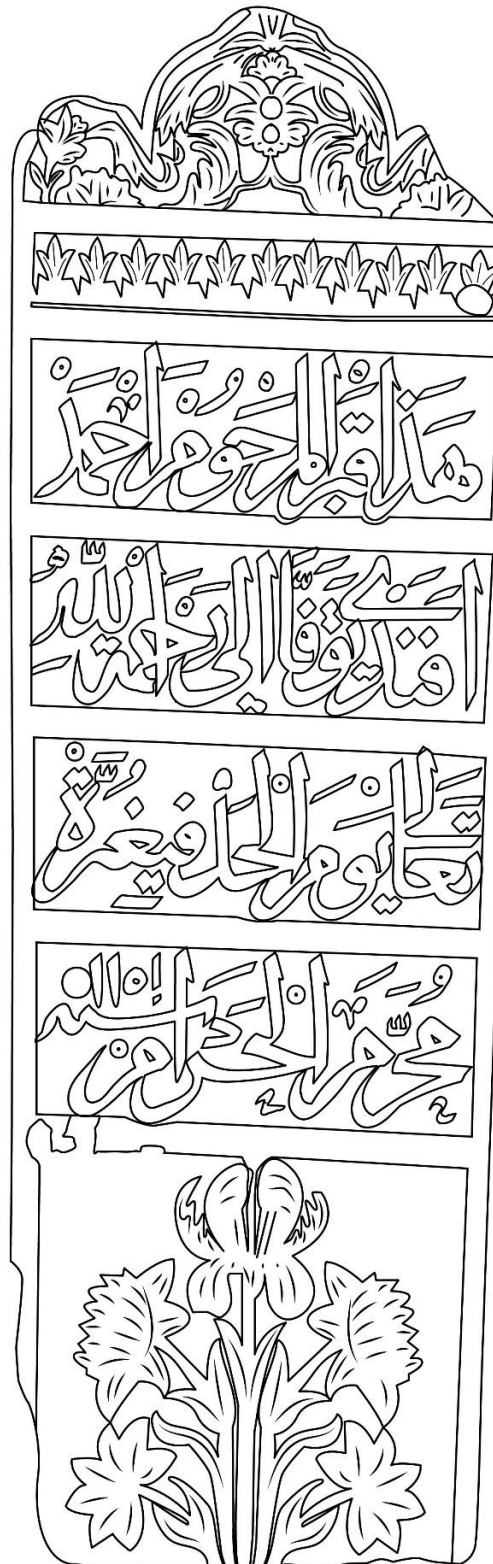 هذا قبر المرحوم احمد
افندي توفا الى رحمة الله
تعالى يوم الاحد في غرة
محرم الحرام سنة